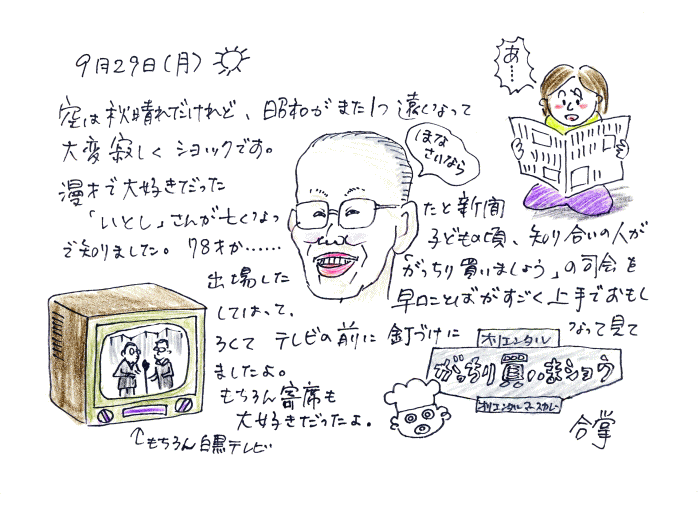 9月29日(月)
あ…
空は秋晴れだけれど、昭和がまた1つ遠くなって
大変寂しく ショックです。
漫才で大好きだった
「いとし」さんが亡くなったと新聞
で知りました。78才か……
ほな
さいなら
子どもの頃、知り合いの人が
出場した「がっちり買いましょう」の司会を
してはって、早口ことばがすごく上手でおもし
ろくて テレビの前に 釘づけになって見て
ましたよ。
もちろん寄席も
大好きだったよ。
↑もちろん白黒テレビ
オリエンタル
がっちり買いまショウ
オリエンタルマースカレー
合掌